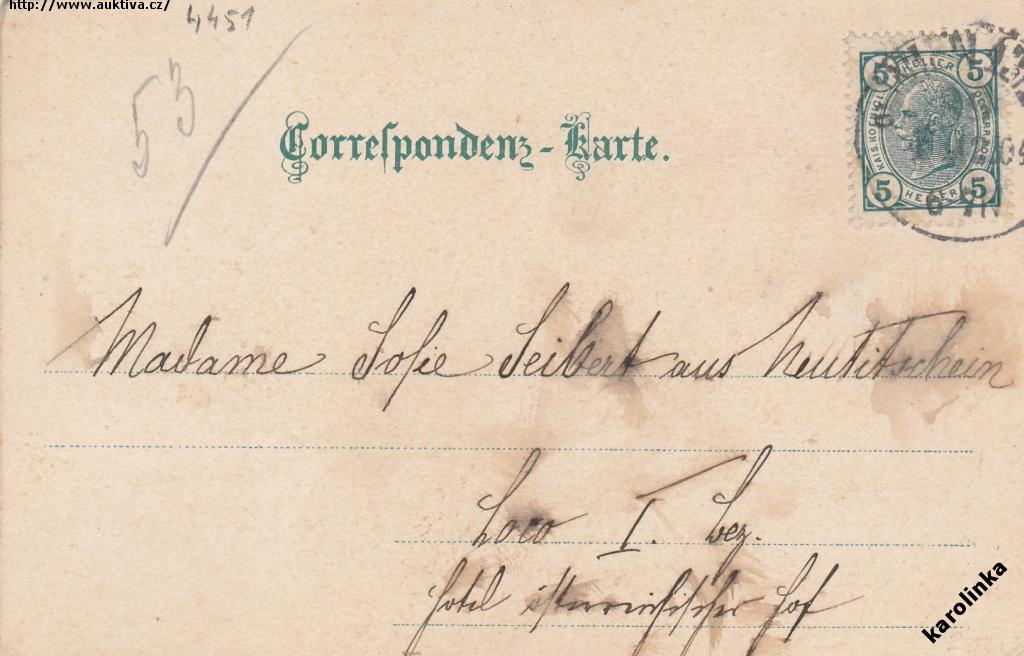 http://www.auktiva.cz/
4451
53
Correspondenz-Karte.
5 HELLER 5
KAIS. KOENIGL.
5 HELLER 5
04
Madame Sofie Seibert aus Neutitschein
Loco I. Bez.
Hotel österreichischer Hof
karolinka